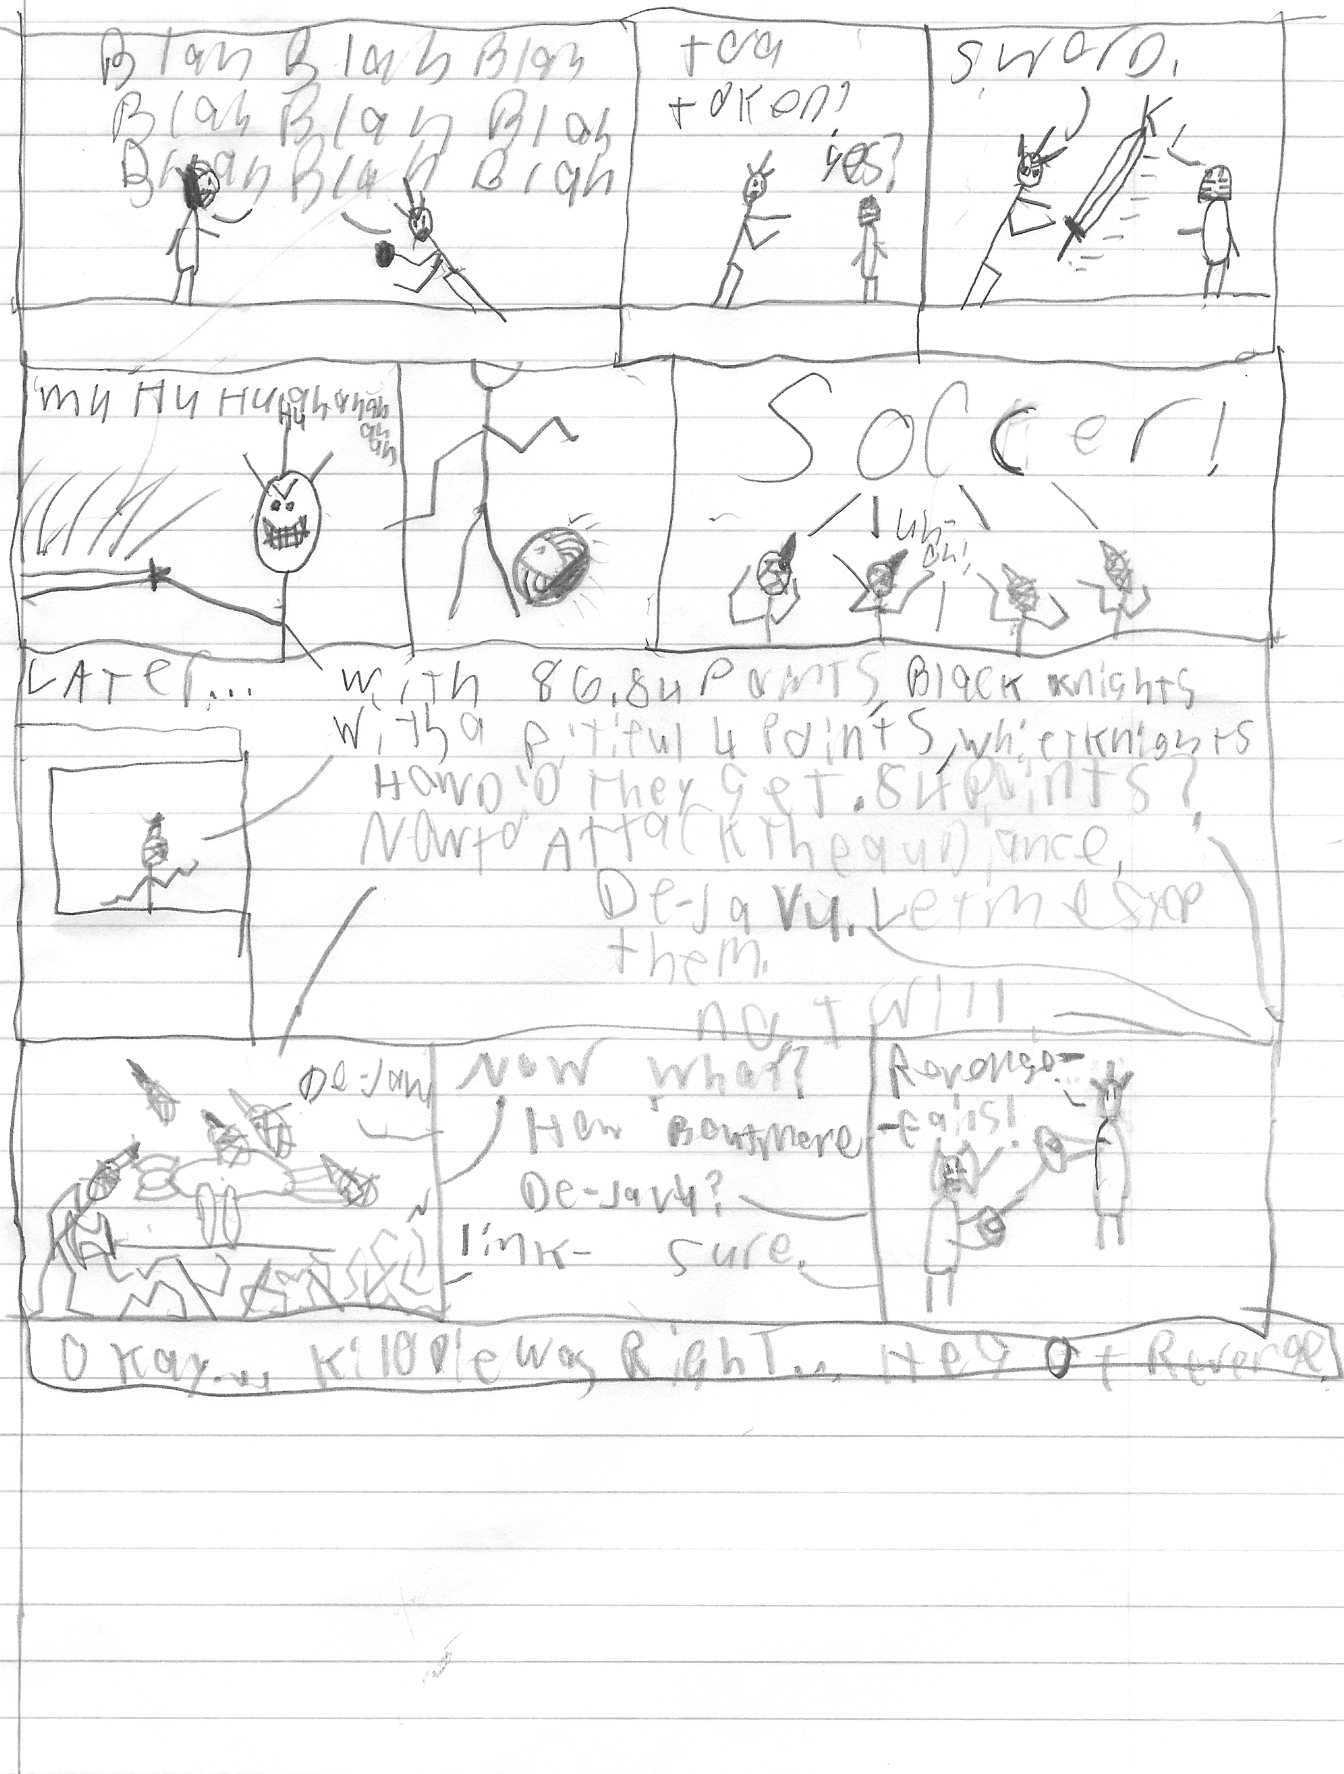 Blah Blah Blah
Blah Blah Blah
Blah Blah Blah
toa
token?
yes?
sword.
mu Hu Hu Hu ah ah ah
ah
ah
Soccer!
uh-
oh!
LATer...
with 86.84 Points, Black knights
With a pitiful 4 Points, whietknights
How D'D they get .84 Points?
Now to Attack the audiance.
De-Ja Vu. Let me stop
them.
not Will
De-Javu
Now what?
How 'Bout more
De-Javu?
link-
sure.
Revenge-
-eains!
Okay... Killddle was Right... He Got Revenge.